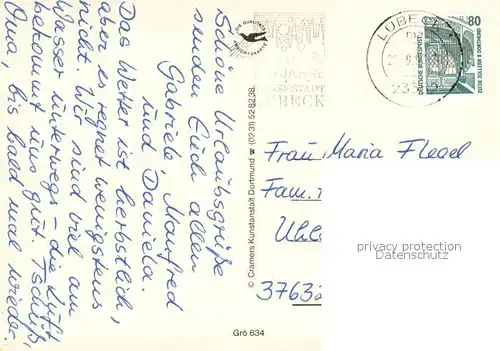 Schöne Urlaubsgrüße
senden Euch allen
Gabriele, Manfred
und Daniela.
Das Wetter ist herbstlich,
aber es regnet wenigstens
nicht. Wir sind viel am
Wasser unterwegs – die Luft
bekommt uns gut. Tschüß,
Oma, bis bald mal wieder.
DIE QUALITÄTS
© Cramers Kunstanstalt Dortmund ☎ (0231) 528238
Grö 634
JAHRE
HANSESTADT
LÜBECK
LÜBECK
80
DEUTSCHE BUNDESPOST
ZECHE ZOLLERN II DORTMUND
Frau Maria Flegel
Fam.
3763
privacy protection
Datenschutz